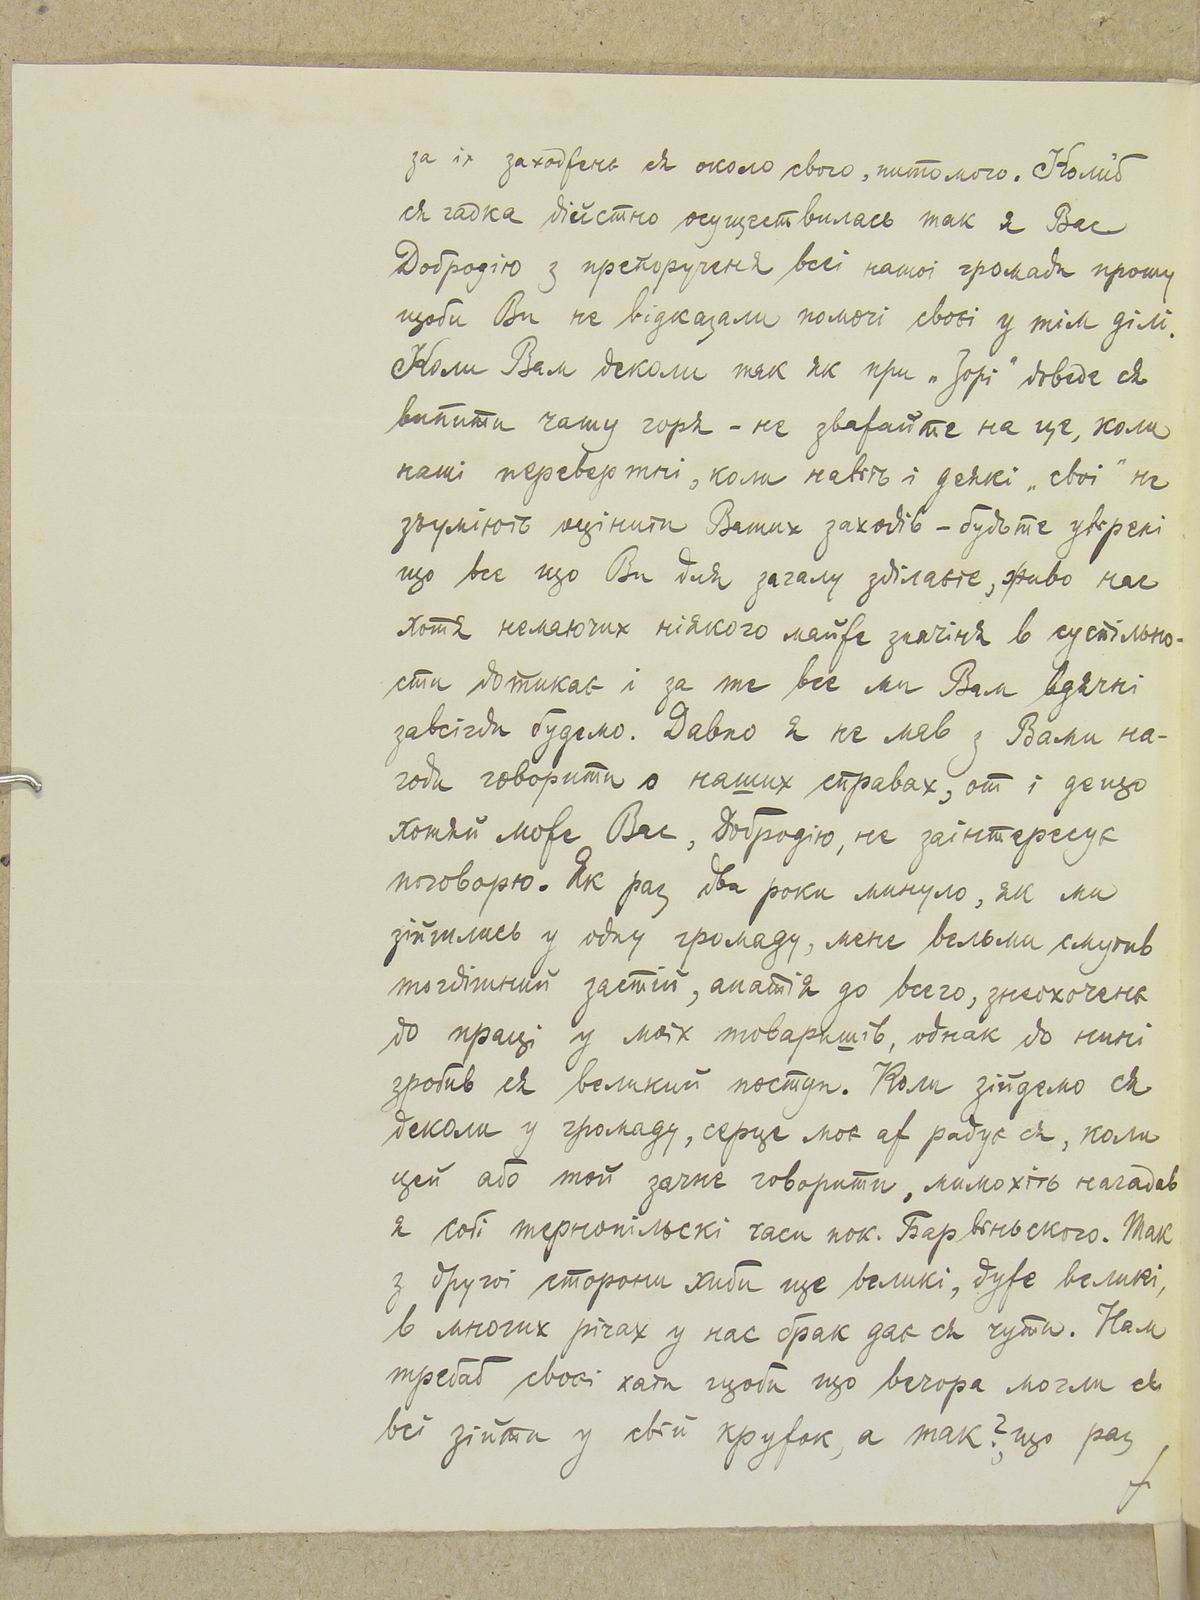 за їх заходженє ся около свого, питомого. Колиб
ся гадка дійстно осущетвилась так я Вас
Добродію з препорученя всеї нашої громади прошу
щоби Ви не відказали помочі своєї у тім ділі.
Коли Вам деколи так як при „Зорі" доведе ся
випити чашу горя – не зважайте на це, коли
наші перевертні, коли навіть і деякі „свої" не
зъуміють оцінити Ваших заходів – будьте увірені
що все що Ви для загалу зділаєте, живо нас
хотя немаючих ніякого майже значіня в суспільно-
сти дотикає і за те все ми Вам вдячні
завсігди будемо. Давно я не мав з Вами на-
годи говорити о наших справах, от і дещо
хотяй може Вас, Добродію, не заінтересує
поговорю. Як раз два роки минуло, як ми
зійшлись у одну громаду, мене вельми смутив
тогдішний застій, апатія до всего, знеохоченє
до праці у моїх товаришів, однак до нині
зробив ся великий поступ. Коли зійдемо ся
деколи у громаду, серце моє аж радує ся, коли
цей або той зачне говорити, мимохіть нагадав
я собі тернопільскі часи пок. Барвіньского. Так
з другої сторони хиби ще великі, дуже великі,
в многих річах у нас брак дає ся чути. Нам
требаб своєї хати щоби що вечора могли ся
всі зійти у свій кружок, а так? що раз